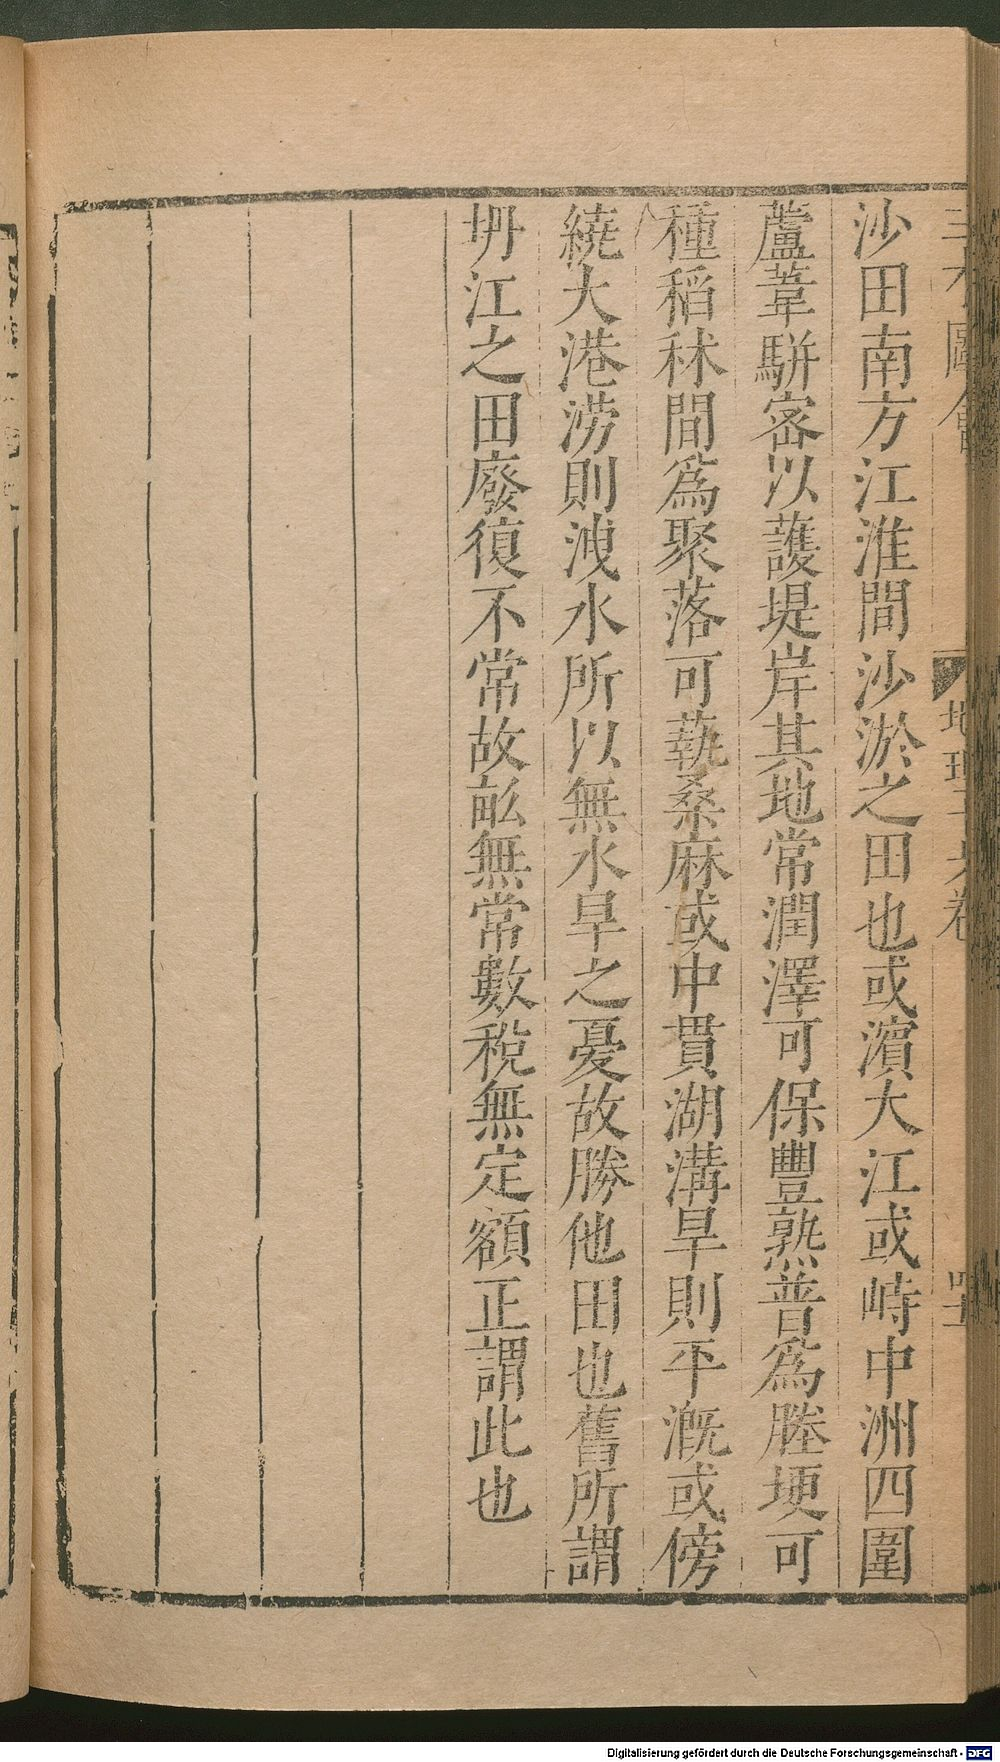 沙田南方江淮間沙淤之田也或濱大江或峙中洲四圍
蘆葦駢密以護堤岸其地常潤澤可保豐熟普爲塍埂可
種稻秫間爲聚落可蓺桑麻或中貫湖溝旱則平溉或傍
繞大港澇則洩水所以無水旱之憂故勝他田也舊所謂
坍江之田廢復不常故畝無常數稅無定額正謂此也
Digitalisierung gefördert durch die Deutsche Forschungsgemeinschaft - DFG